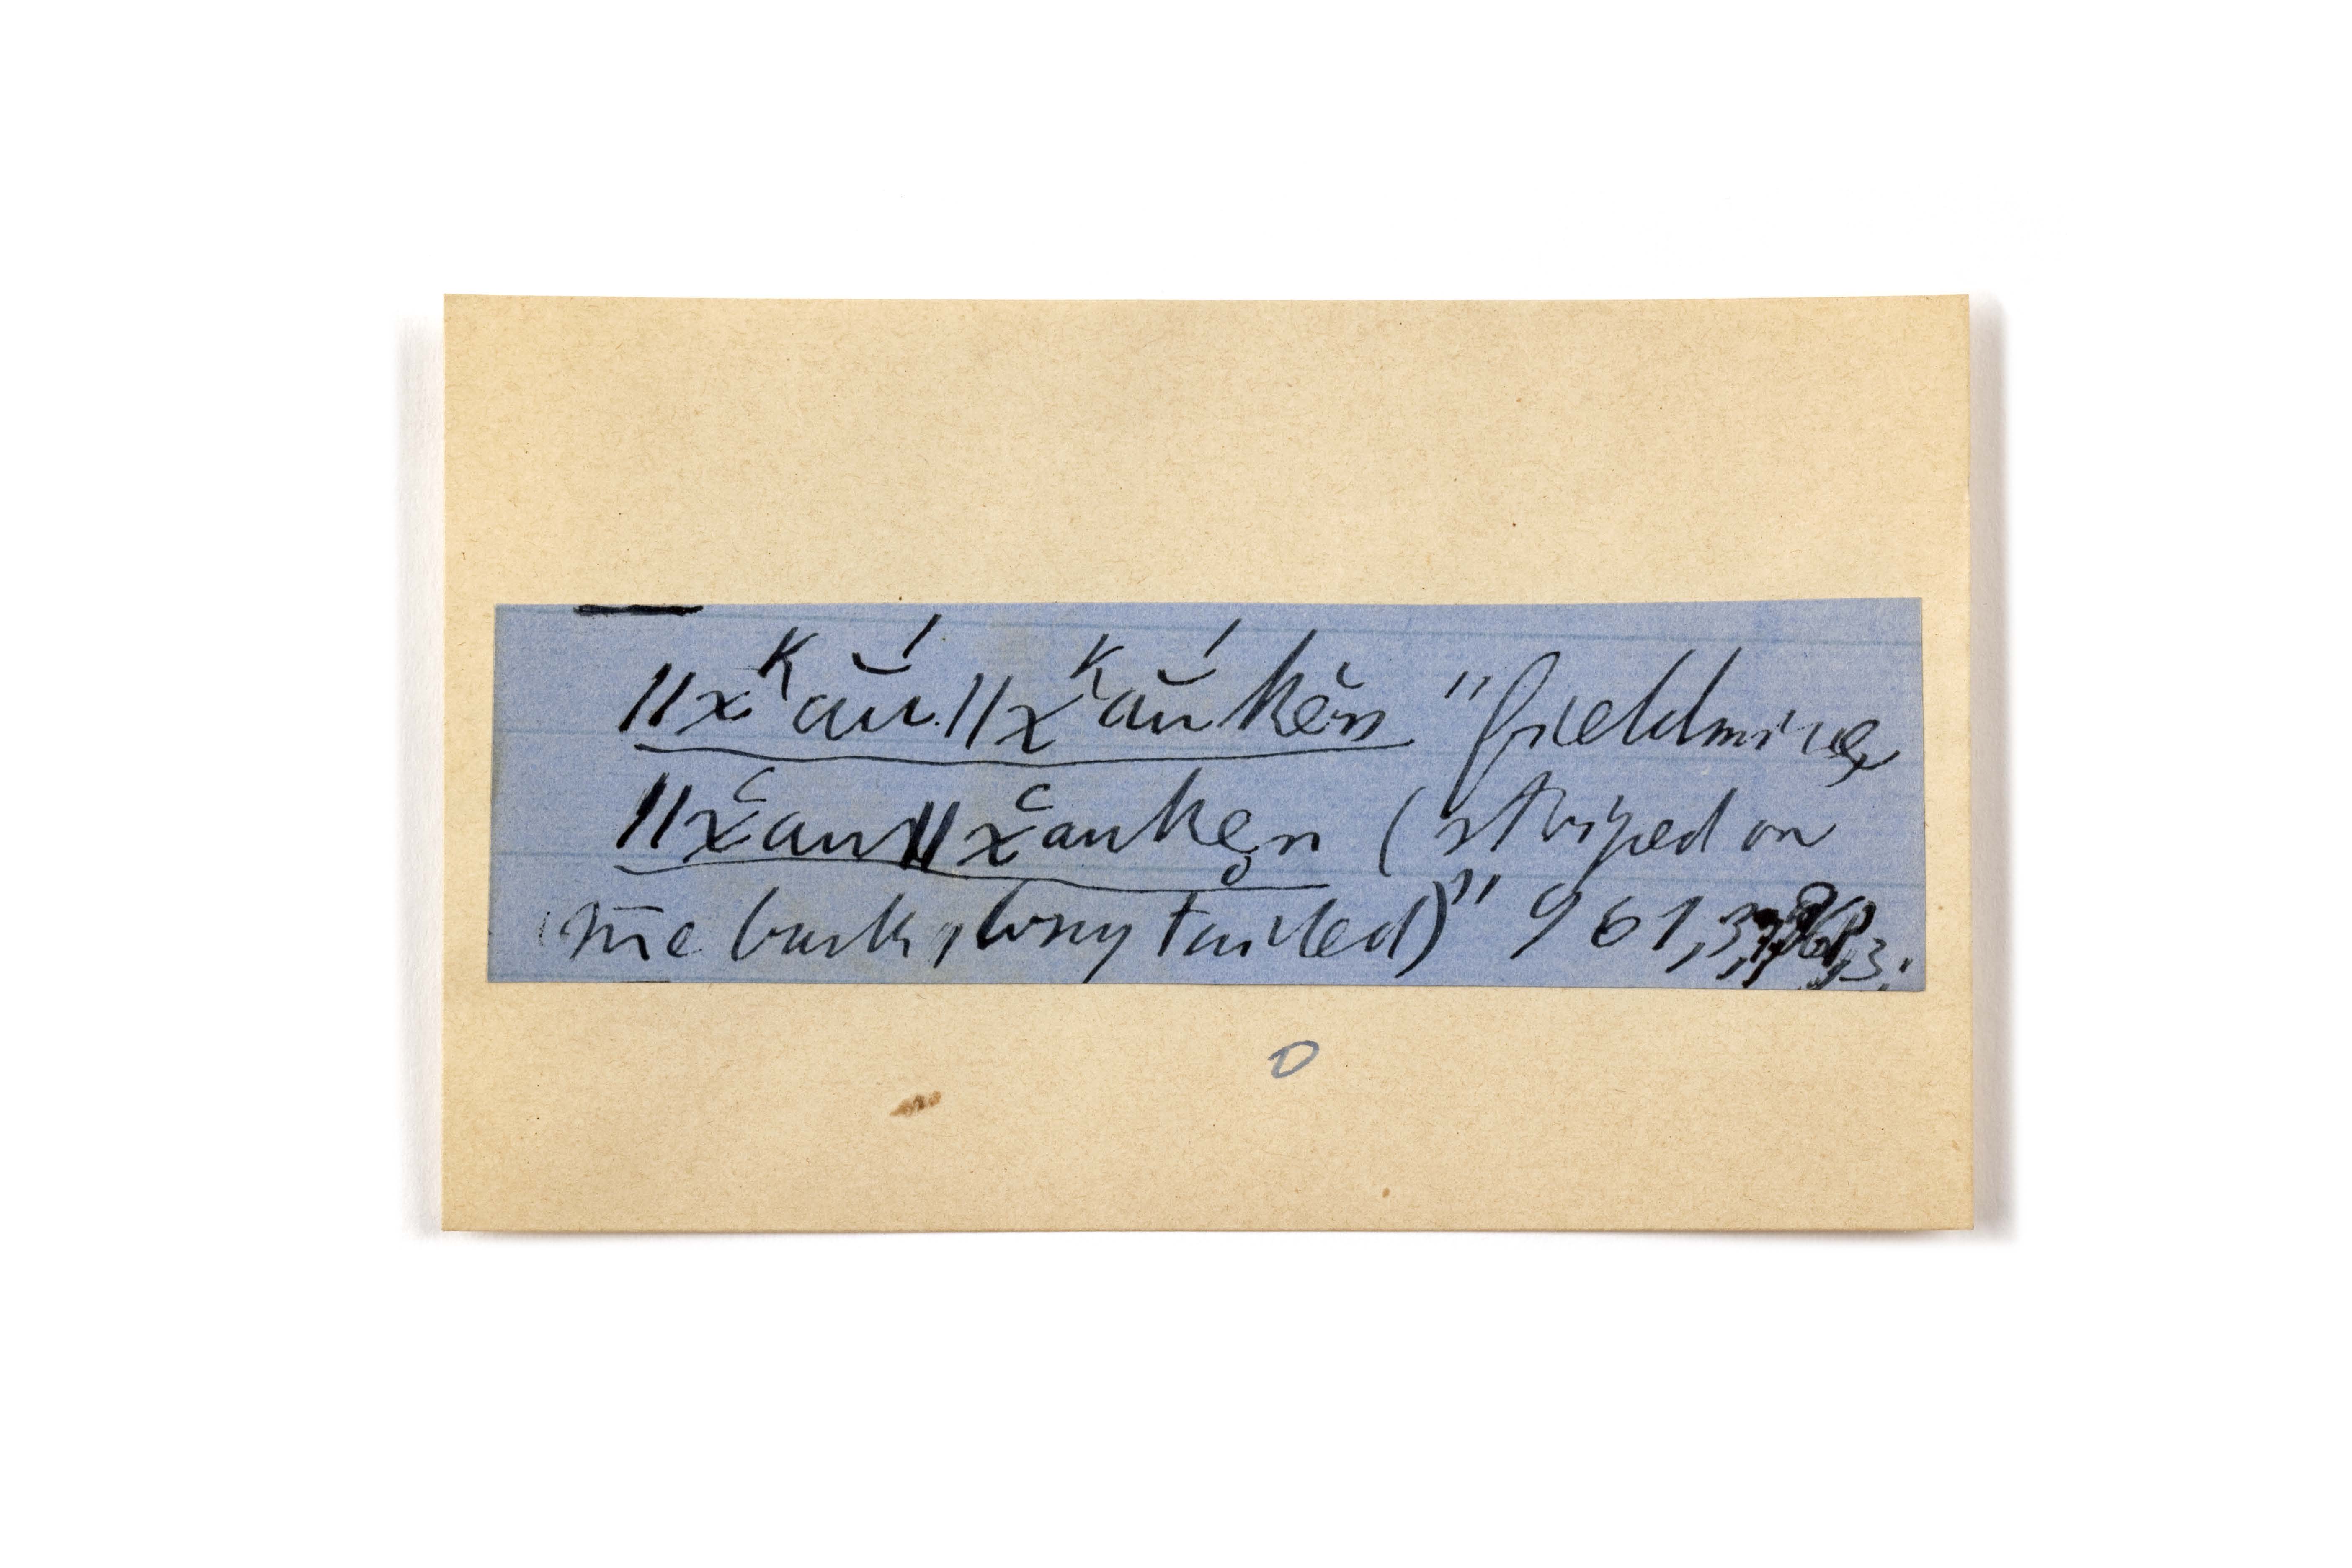 ǁxᴷău̍ ǁχᴷău̍kĕn "fieldmice
ǁχ͑auǁχ͑auken (striped on
the back, long tailed)" 961,3, 3.
O